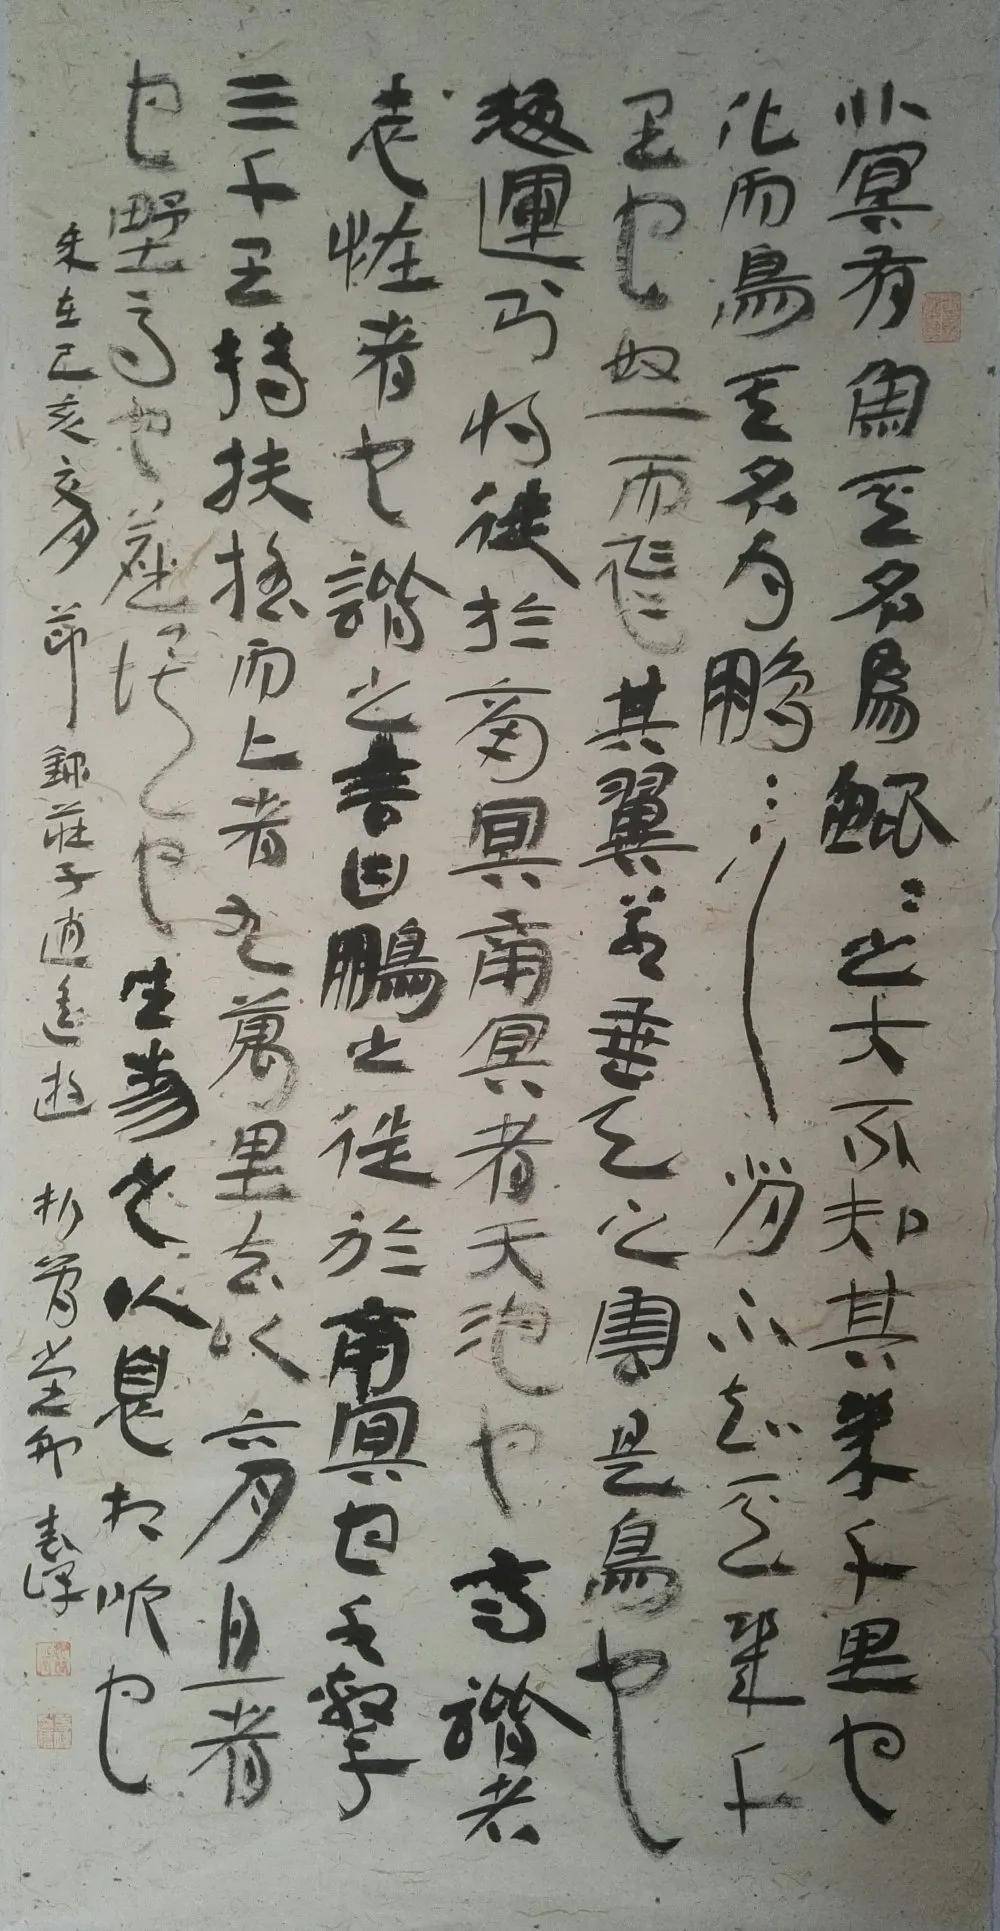 北冥有魚其名爲鯤〻之大不知其幾千里也
化而鳥其名爲鵬〻之背不知其幾千
里也怒而飛其翼若垂天之雲是鳥也
海運則將徙於南冥南冥者天池也齊諧者
志怪者也諧之言曰鵬之徙於南冥也水擊
三千里摶扶搖而上者九萬里去以六月息者
也野馬也塵埃也生物之以息相吹也
歲在己亥交月節錄莊子逍遙遊